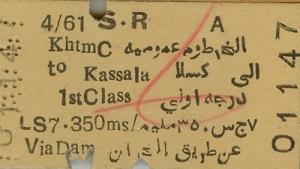 4/61 S.R A
KhtmC الخرطوم عموميه
to Kassala الى كسلا
1st Class درجه اولي
LS7.350ms/ ٧ج س.٣٥٠مليم
Via Dam عن طريق الخزان
01147